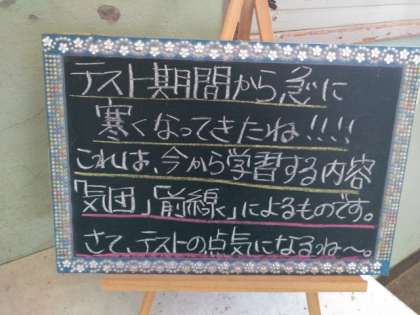 テスト期間から急に
寒くなってきたね!!!!
これは、今から学習する内容
「気団」「前線」によるものです。
さて、テストの点気になるね〜。